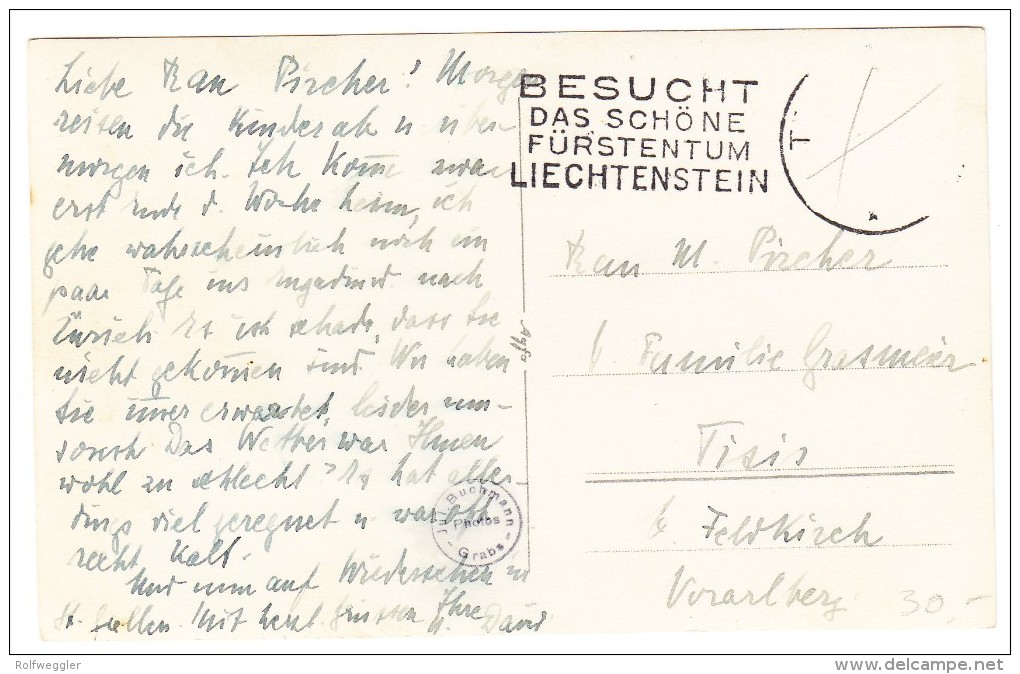 Liebe Frau Pircher! Morgen
reisen die Kinder ab u. über-
morgen ich. Ich komme zwar
erst Ende d. Woche heim, ich
gehe wahrscheinlich noch ein
paar Tage ins Engadin u. nach
Zürich. Es ist schade, dass Sie
nicht gekommen sind. Wir haben
Sie immer erwartet, leider um-
sonst. Das Wetter war Ihnen
wohl zu schlecht? Es hat aller-
dings viel geregnet u. war oft
recht kalt.
Und nun auf Wiedersehen in
St. Gallen. Mit herzl. Grüssen Ihre
David
BESUCHT
DAS SCHÖNE
FÜRSTENTUM
LIECHTENSTEIN
T
Agfa
Frau M. Pircher
b. Familie Grasmeier
Tisis
b. Feldkirch
Vorarlberg
30.-
Buchmann
Photos
- Grabs -
Rolfweggler
www.delcampe.net